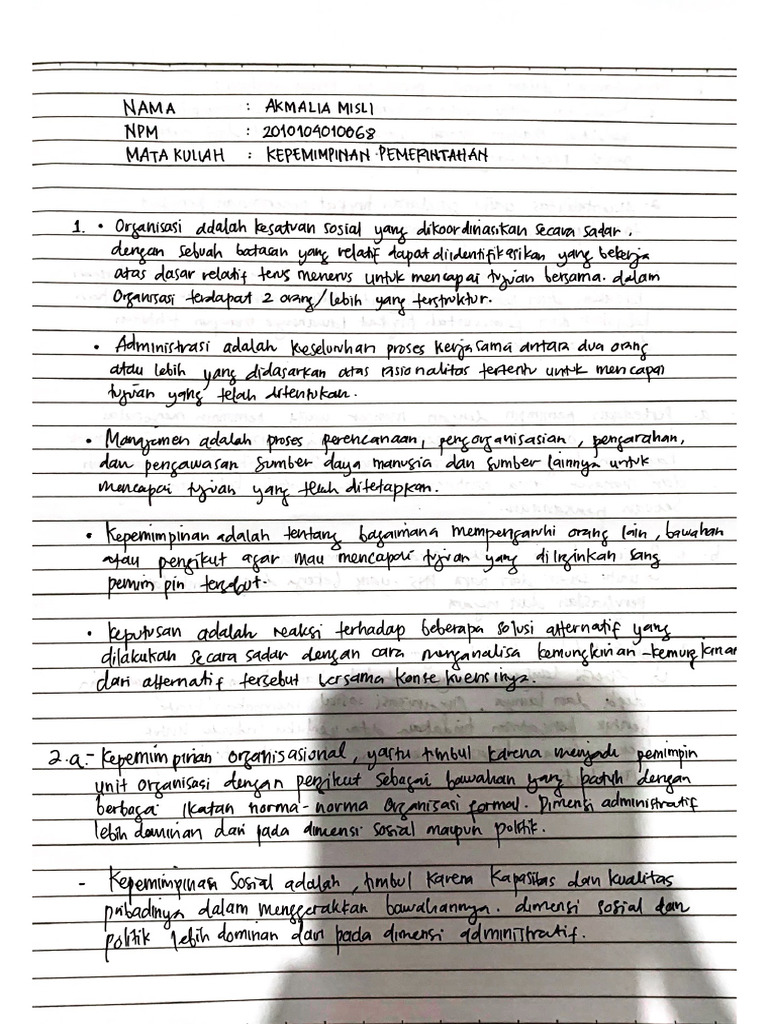 NAMA : AKMALIA MISLI
NPM : 2010104010068
MATA KULIAH : KEPEMIMPINAN PEMERINTAHAN
1. • Organisasi adalah kesatuan sosial yang dikoordinasikan secara sadar.
dengan sebuah batasan yang relatif dapat diidentifikasikan yang bekerja
atas dasar relatif terus menerus untuk mencapai tujuan bersama. dalam
Organisasi terdapat 2 orang/lebih yang terstruktur.
• Administrasi adalah keseluruhan proses kerjasama antara dua orang
atau lebih yang didasarkan atas rasionalitas tertentu untuk mencapai
tujuan yang telah ditentukan.
• Manajemen adalah proses perencanaan, pengorganisasian, pengarahan,
dan pengawasan sumber daya manusia dan sumber lainnya untuk
mencapai tujuan yang telah ditetapkan.
• Kepemimpinan adalah tentang bagaimana mempengaruhi orang lain, bawahan
atau pengikut agar mau mencapai tujuan yang diinginkan sang
pemimpin tersebut.
• Keputusan adalah reaksi terhadap beberapa solusi alternatif yang
dilakukan secara sadar dengan cara menganalisa kemungkinan-kemungkinan
dari alternatif tersebut bersama konsekuensinya.
2.a.- Kepemimpinan organisasional, yaitu timbul karena menjadi pemimpin
unit organisasi dengan pengikut sebagai bawahan yang patuh dengan
berbagai ikatan norma-norma organisasi formal. Dimensi administratif
lebih dominan dari pada dimensi sosial maupun politik.
- Kepemimpinan Sosial adalah, timbul karena kapasitas dan kualitas
pribadinya dalam menggerakkan bawahannya. dimensi sosial dan
politik lebih dominan dari pada dimensi administratif.